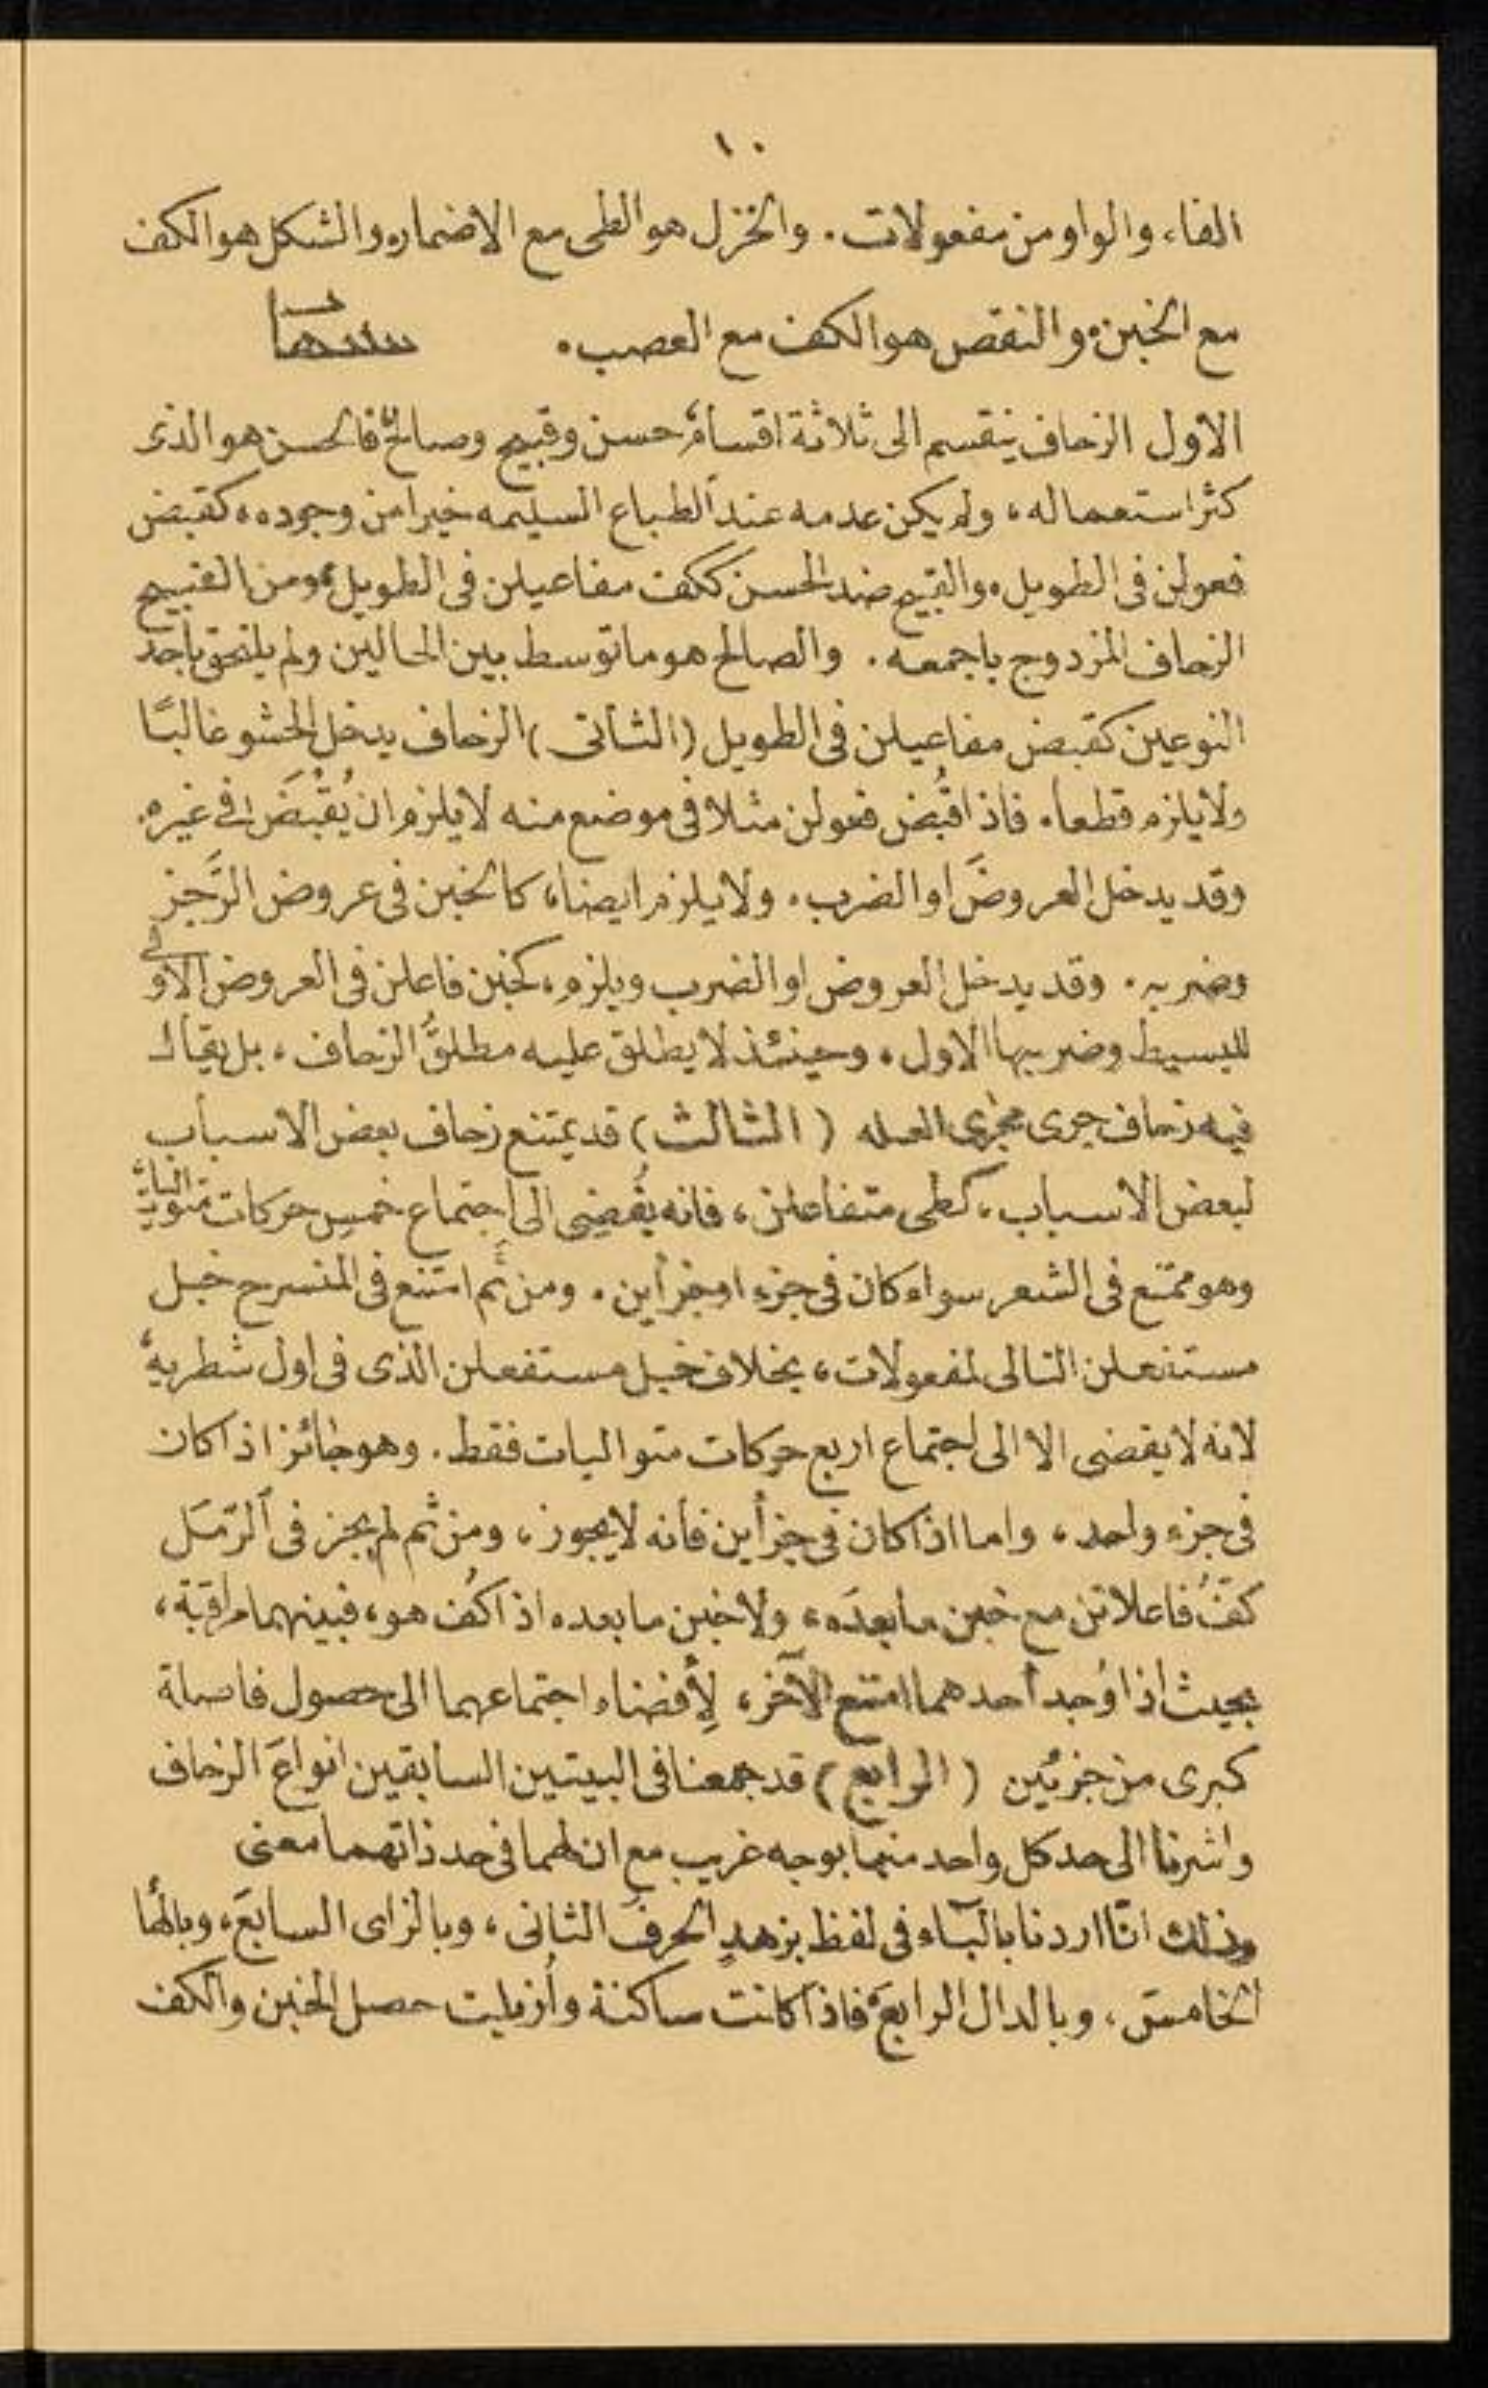 ١٠
الفاء والواو من مفعولات . والخزل هو الطى مع الاضماره والشكل هو الكف
مع الخبن، والنقص هو الكف مع العصب . تنبيهات
الاول الزحاف ينقسم الى ثلاثة اقسام، حسن وقبيح وصالح، فالحسن هو الذى
كثر استعماله، ولم يكن عدمه عند الطباع السليمه خيرا من وجوده، كقبض
فعولن فى الطويل، والقبيح ضد الحسن ككف مفاعيلن فى الطويل، ومن القبيح
الزحاف المزدوج باجمعه . والصالح هو ما توسط بين الحالين ولم يلتحق باحد
النوعين كقبض مفاعيلن فى الطويل (الثانى) الزحاف يدخل الحشو غالبًا
ولا يلزم قطعا، فاذا قُبض فعولن مثلا فى موضع منه لا يلزم ان يُقْبَضَ فى غيره.
وقد يدخل العروضَ او الضرب . ولا يلزم ايضا، كالخبن فى عروض الرَّجز
وضربه . وقد يدخل العروض او الضرب ويلزم، كخبن فاعلن فى العروض الاولى
للبسيط وضربها الاول . وحينئذ لا يطلق عليه مطلقُ الزحاف، بل يقال
فيه زحاف جرى مجرى العله (الثالث) قد يمتنع زحاف بعض الاسباب
لبعض الاسباب، كطى متفاعلن، فانه يُفضِى الى اجتماع خمسِ حركات متواليات
وهو ممتنع فى الشعر سواء كان فى جزء او جزأين . ومن ثَم امتنع فى المنسرح خبل
مستفعلن التالى لمفعولات، بخلاف خبل مستفعلن الذى فى اول شطريه،
لانه لا يفضى الا الى اجتماع اربع حركات متواليات فقط . وهو جائز اذا كان
فى جزء واحد، واما اذا كان فى جزأين فأنه لا يجوز، ومن ثم لم يجز فى الرَّمَل
كفُّ فاعلاتن مع خبن ما بعدَه، ولا خبن ما بعده اذا كُف هو، فبينهما مراقبة،
بحيث اذا وُجد احدهما امتنع الآخر، لِأفضاء اجتماعهما الى حصول فاصلة
كبرى من جزئين (الرابع) قد جمعنا فى البيتين السابقين انواعَ الزحاف
واشرنا الى حد كل واحد منهما بوجه غريب مع ان لهما فى حد ذاتهما معنى
وذلك انّا اردنا بالبآء فى لفظ بزهدٍ الحرفَ الثانى، وبالزاى السابعَ، وبالها
الخامسَ، وبالدال الرابعَ، فاذا كانت ساكنة وأُزيلت حصل الخبن والكف